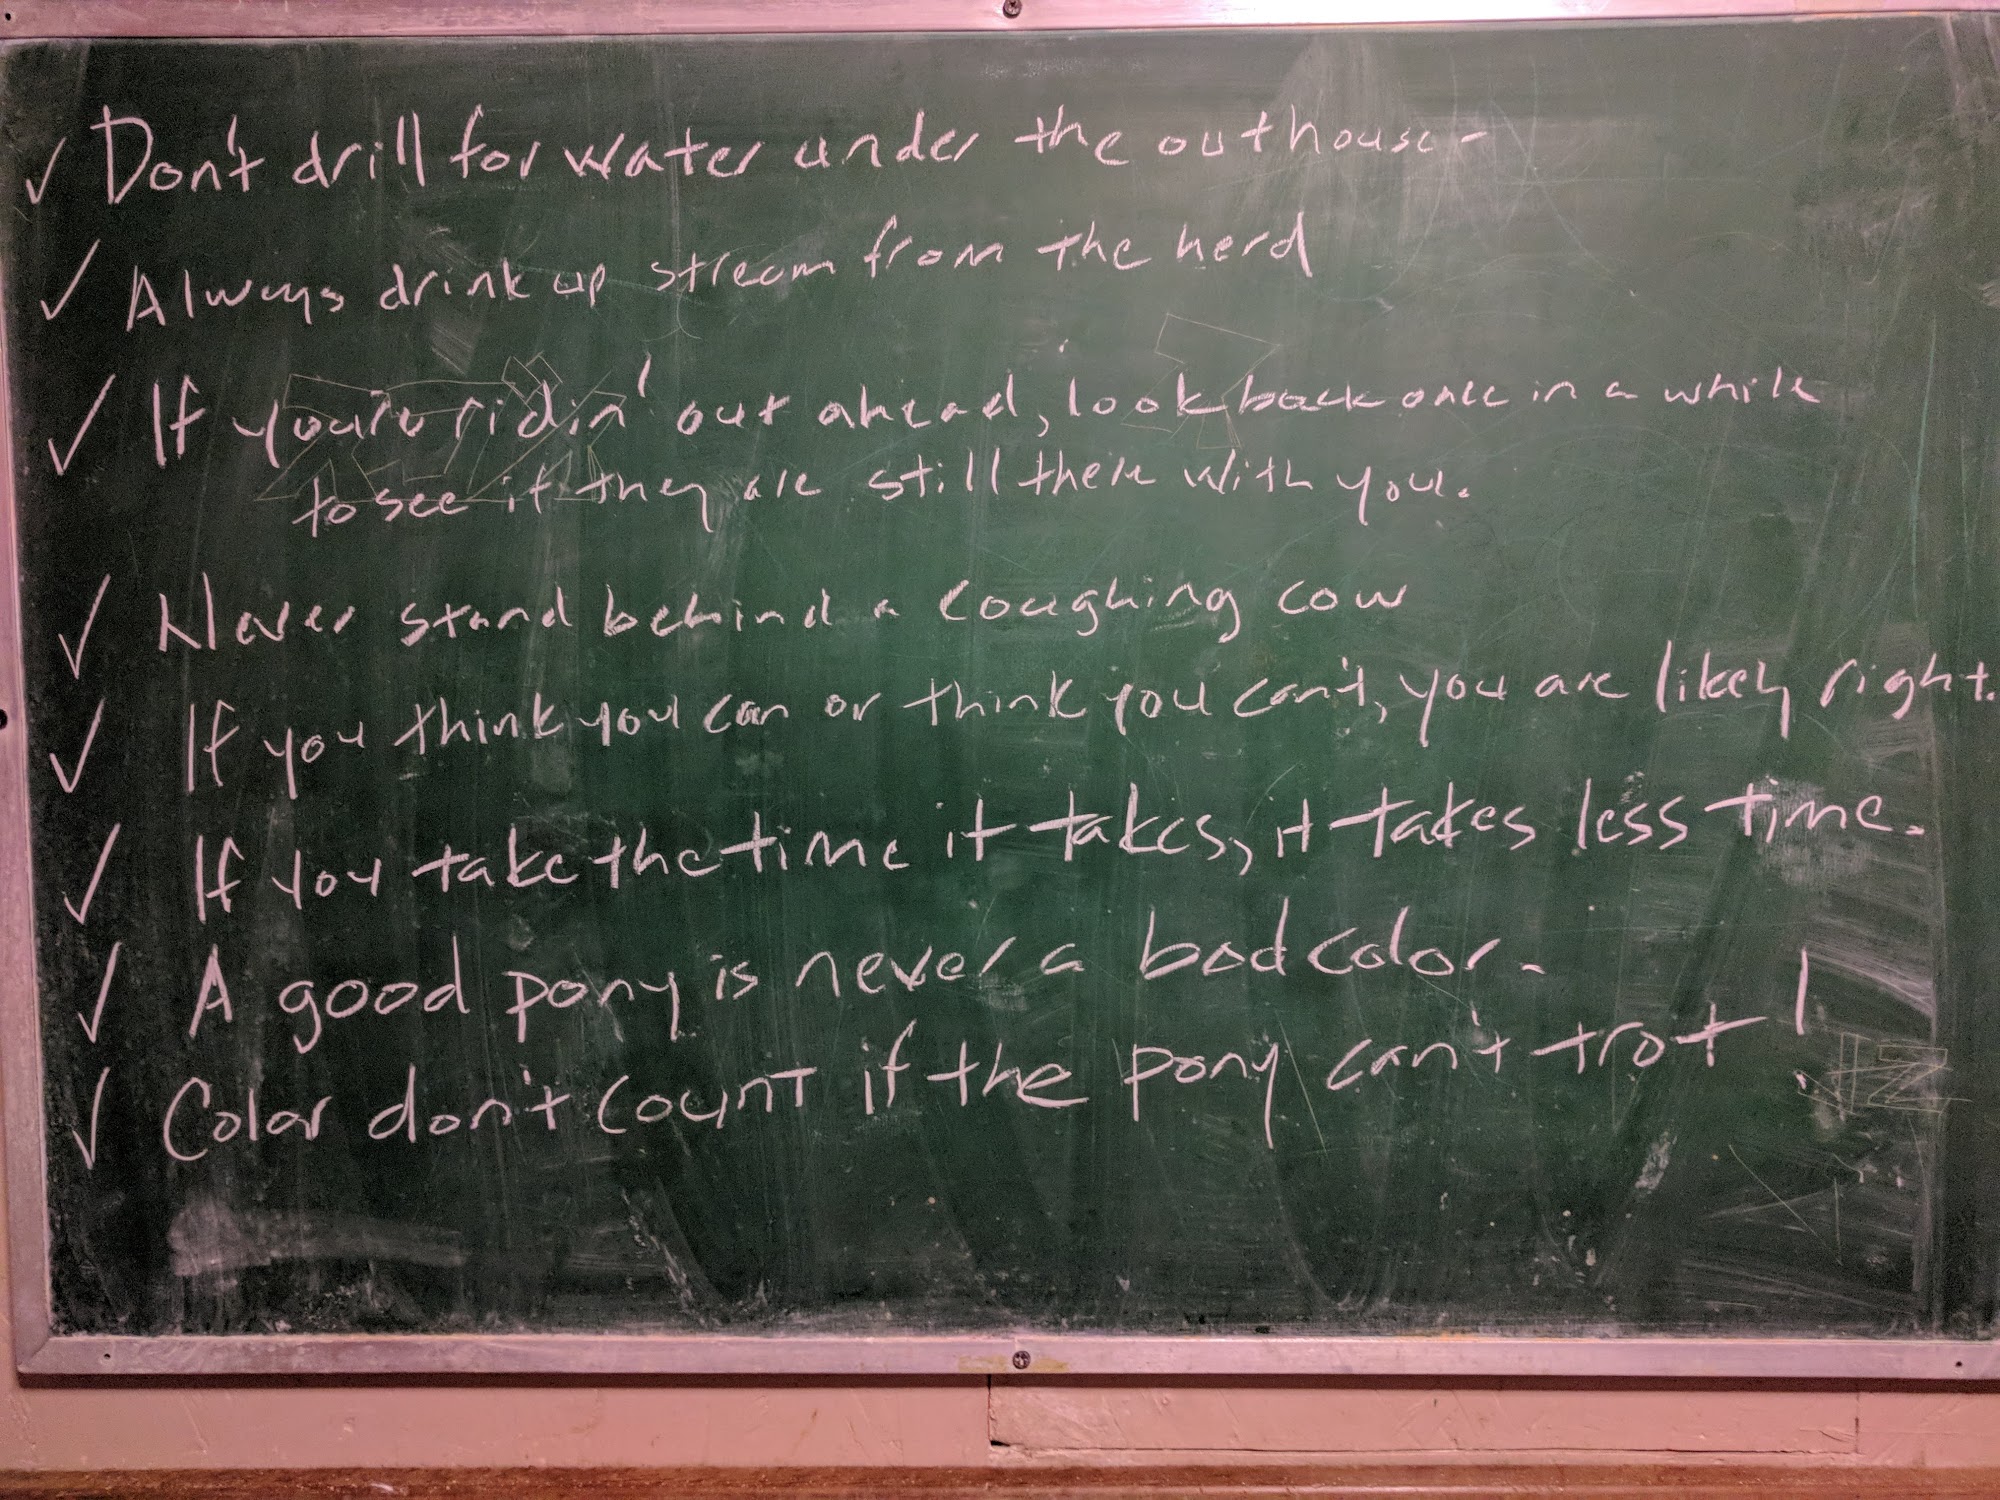 ✓ Don't drill for water under the outhouse -
✓ Always drink up stream from the herd
✓ If you're ridin' out ahead, look back once in a while
to see if they are still there with you.
✓ Never stand behind a coughing cow
✓ If you think you can or think you can't, you are likely right.
✓ If you take the time it takes, it takes less time.
✓ A good pony is never a bad color.
✓ Color don't count if the pony can't trot!